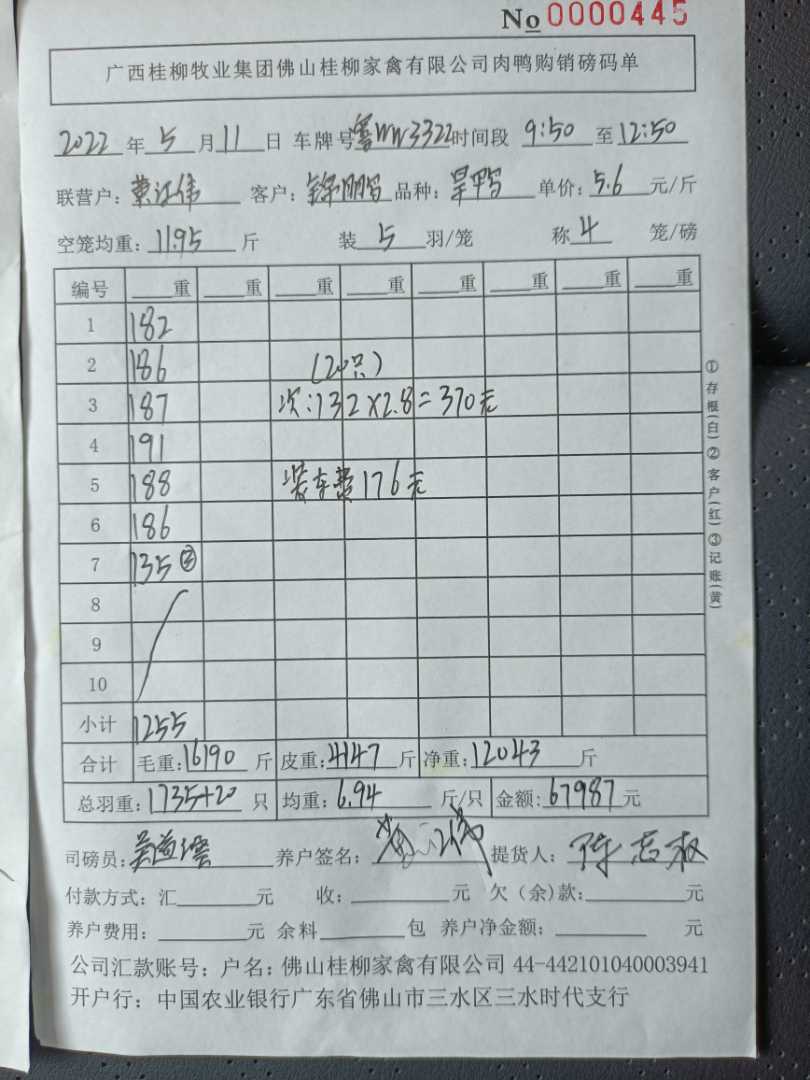 No 0000445
广西桂柳牧业集团佛山桂柳家禽有限公司肉鸭购销磅码单
2022 年 5 月 11 日 车牌号 粤WW3322 时间段 9:50 至 12:50
联营户: 客户: 品种: 旱鸭 单价: 5.6 元/斤
空笼均重: 11.95 斤 装 5 羽/笼 称 4 笼/磅
编号 重 重 重 重 重 重 重 重
1 182
2 186 (20只)
3 187 次:132×2.8=370元
4 191
5 188 装车费176元
6 186
7 135 ③
8
9
10
小计 1255
合计 毛重: 16190 斤 皮重: 4147 斤 净重: 12043 斤
总羽重: 1735+20 只 均重: 6.94 斤/只 金额: 67987 元
司磅员: 养户签名: 提货人: 陈志权
付款方式: 汇 元 收: 元 欠(余)款: 元
养户费用: 元 余料 包 养户净金额: 元
公司汇款账号: 户名: 佛山桂柳家禽有限公司 44-442101040003941
开户行: 中国农业银行广东省佛山市三水区三水时代支行
①存根(白)②客户(红)③记账(黄)